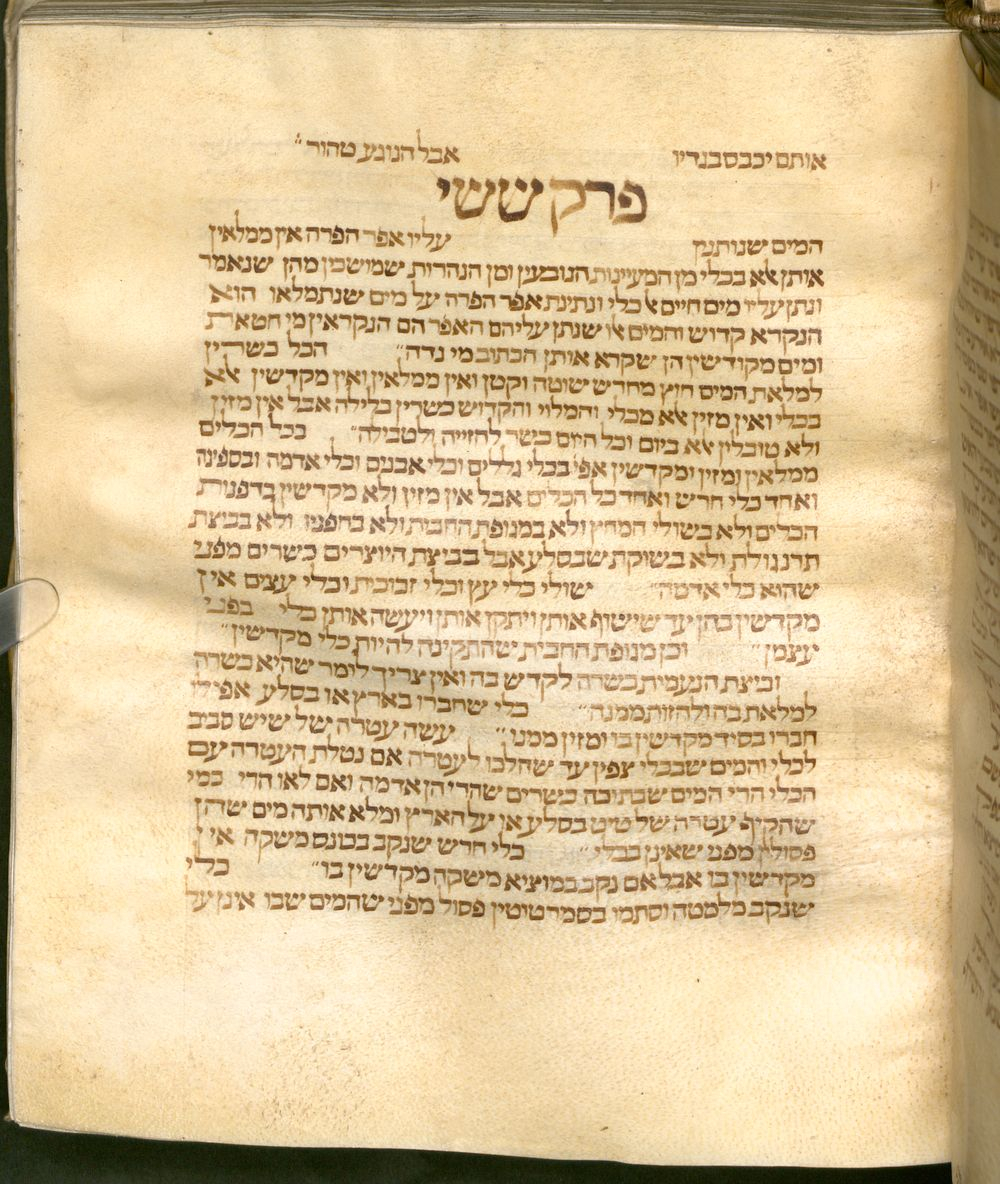 אותם יכבס בגדיו אבל הנוגע טהור״
פרק ששי
המים שנותנין עליו אפר הפרה אין ממלאין
אותן אלא בכלי מן המעיינות הנובעין ומן הנהרות שמושכין מהן שנאמר
ונתן עליו מים חיים אל כלי ונתינת אפר הפרה על מים שנתמלאו הוא
הנקרא קדוש והמים אלו שנתן עליהם האפר הם הנקראין מי חטאת
ומים מקודשין הן שקרא אותן הכתוב מי נדה״ הכל כשרין
למלאת המים חוץ מחרש שוטה וקטן ואין ממלאין ואין מקדשין אלא
בכלי ואין מזין אלא מכלי והמלוי והקדוש כשרין בלילה אבל אין מזין
ולא טובלין אלא ביום וכל היום כשר להזייה ולטבילה״ בכל הכלים
ממלאין ומזין ומקדשין אפי׳ בכלי גללים וכלי אבנים וכלי אדמה ובספינה
ואחד כלי חרש ואחד כל הכלים אבל אין מזין ולא מקדשין בדפנות
הכלים ולא בשולי המחץ ולא במגופת החבית ולא בחפניו ולא בביצת
תרנגולת ולא בשוקת שבסלע אבל בביצת היוצרים כשרים מפני
שהוא כלי אדמה״ שולי כלי עץ וכלי זכוכית וכלי עצים אין
מקדשין בהן עד שישוף אותן ויתקן אותן ויעשה אותן כלי בפני
עצמן״ וכן מגופת החבית שהתקינה להיות כלי מקדשין״
וביצת הנעמית כשרה לקדש בה ואין צריך לומר שהיא כשרה
למלאת בה ולהזות ממנה״ כלי שחברו בארץ או בסלע אפילו
חברו בסיד מקדשין בו ומזין ממנו״ עשה עטרה של שיש סביב
לכלי והמים שבכלי צפין עד שהלכו לעטרה אם נטלת העטרה עם
הכלי הרי המים שבתוכה כשרים שהרי הן אדמה ואם לאו הרי כמי
שהקיף עטרה של טיט בסלע או על הארץ ומלא אותה מים שהן
פסולין מפני שאינן בכלי״ כלי חרש שנקב בכונס משקה אין
מקדשין בו אבל אם נקב במוציא משקה מקדשין בו״ כלי
שנקב מלמטה וסתמו בסמרטוטין פסול מפני שהמים שבו אינן על